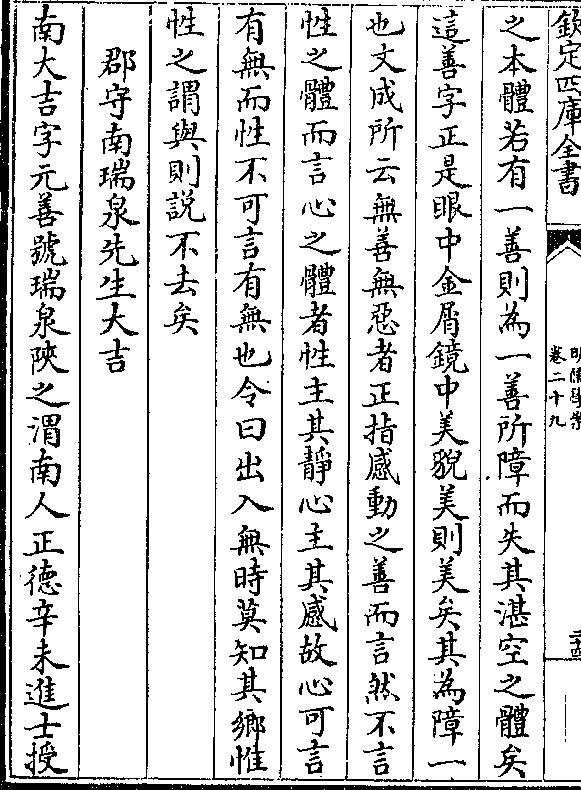 欽定四庫全書
明儒學案
卷二十九
之本體若有一善則為一善所障而失其湛空之體矣
這善字正是眼中金屑鏡中美貌美則美矣其為障一
也文成所云無善無惡者正指感動之善而言然不言
性之體而言心之體者性主其靜心主其感故心可言
有無而性不可言有無也今曰出入無時莫知其鄉惟
性之謂與則説不去矣
郡守南瑞泉先生大吉
南大吉字元善號瑞泉陝之渭南人正德辛未進士授